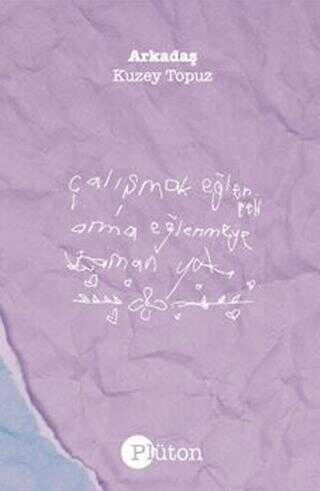 Arkadaş
Kuzey Topuz
çalışmak eğlen
celi
ama eğlenmeye
zaman yok
Plüton